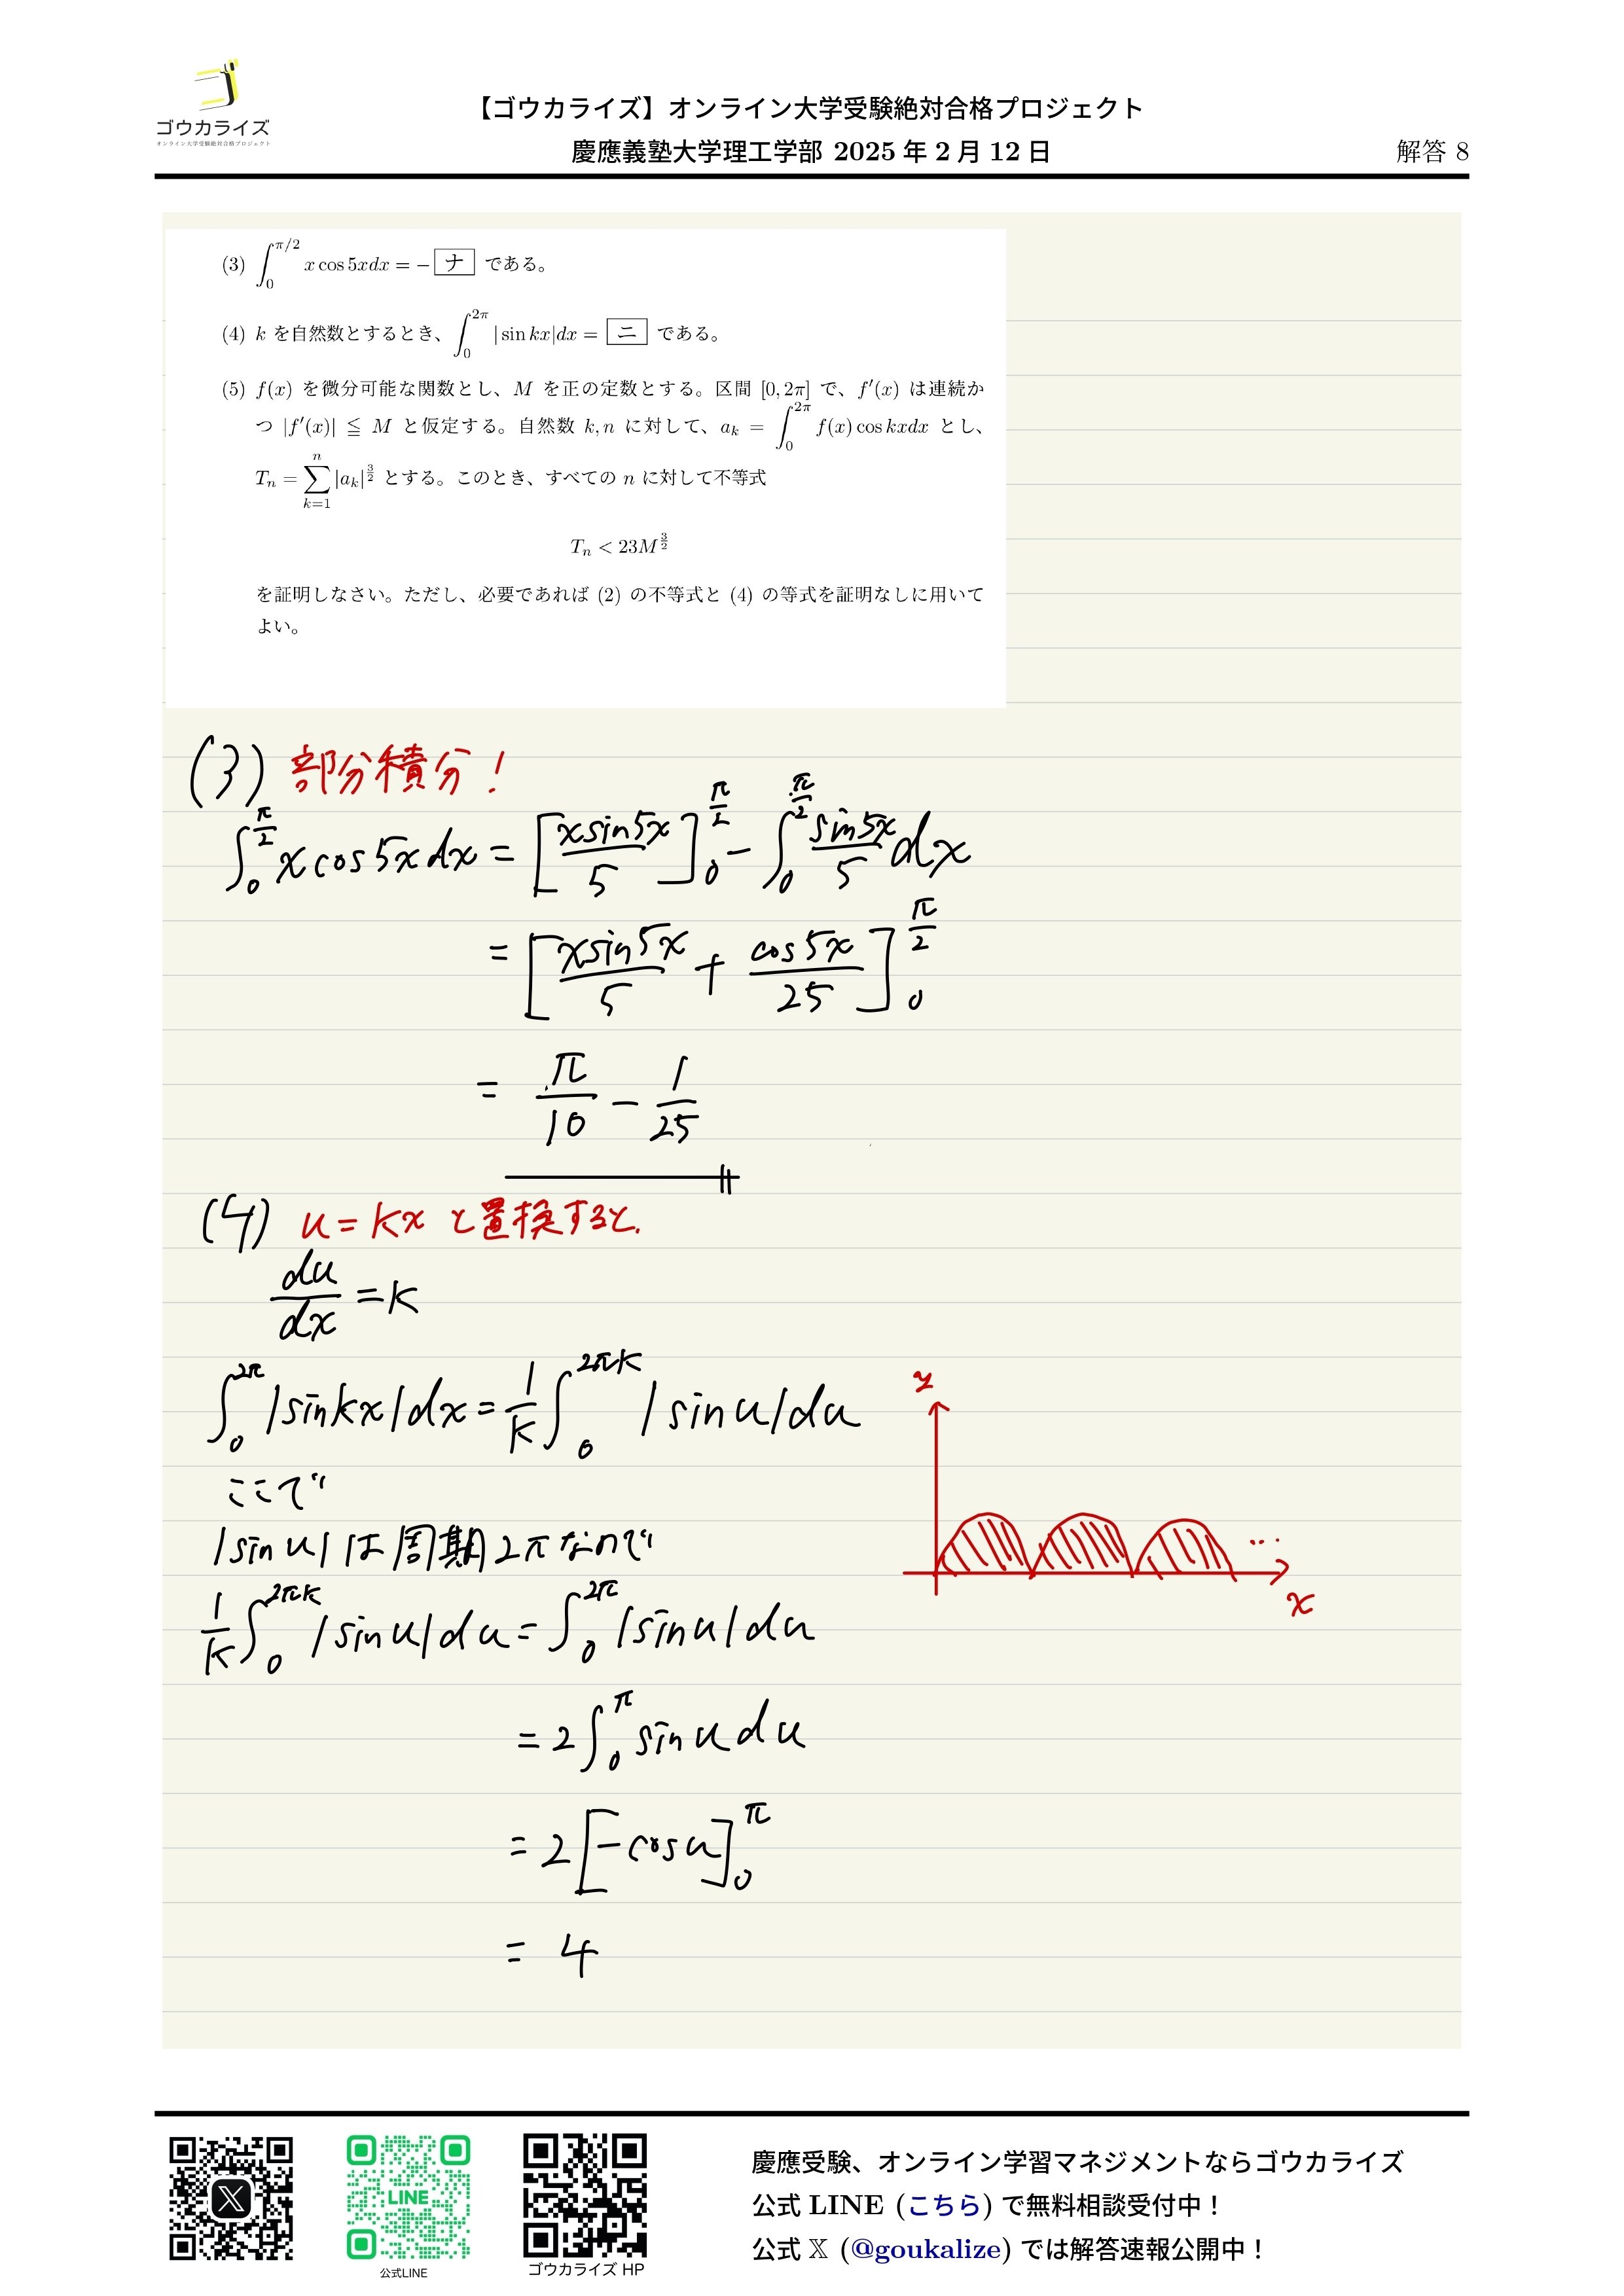 ゴウカライズ
オンライン大学受験絶対合格プロジェクト
【ゴウカライズ】オンライン大学受験絶対合格プロジェクト
慶應義塾大学理工学部 2025 年 2 月 12 日
解答 8
(3) ∫_0^{π/2} x cos 5xdx = − ナ である。
(4) k を自然数とするとき、∫_0^{2π} | sin kx|dx = ニ である。
(5) f(x) を微分可能な関数とし、M を正の定数とする。区間 [0, 2π] で、f′(x) は連続か
つ |f′(x)| ≦ M と仮定する。自然数 k, n に対して、a_k = ∫_0^{2π} f(x) cos kxdx とし、
T_n = ∑_{k=1}^{n} |a_k|^{3/2} とする。このとき、すべての n に対して不等式
T_n < 23M^{3/2}
を証明しなさい。ただし、必要であれば (2) の不等式と (4) の等式を証明なしに用いて
よい。
(3) 部分積分!
∫_0^{π/2} x cos 5x dx = [x sin 5x / 5]_0^{π/2} − ∫_0^{π/2} sin 5x / 5 dx
= [x sin 5x / 5 + cos 5x / 25]_0^{π/2}
= π/10 − 1/25
(4) u = kx と置換すると.
du/dx = k
∫_0^{2π} |sin kx| dx = 1/k ∫_0^{2πk} |sin u| du
ここで
|sin u| は周期 2π なので
1/k ∫_0^{2πk} |sin u| du = ∫_0^{2π} |sin u| du
= 2 ∫_0^{π} sin u du
= 2 [−cos u]_0^{π}
= 4
y
...
x
LINE
公式LINE
ゴウカライズ HP
慶應受験、オンライン学習マネジメントならゴウカライズ
公式 LINE (こちら) で無料相談受付中！
公式 𝕏 (@goukalize) では解答速報公開中！